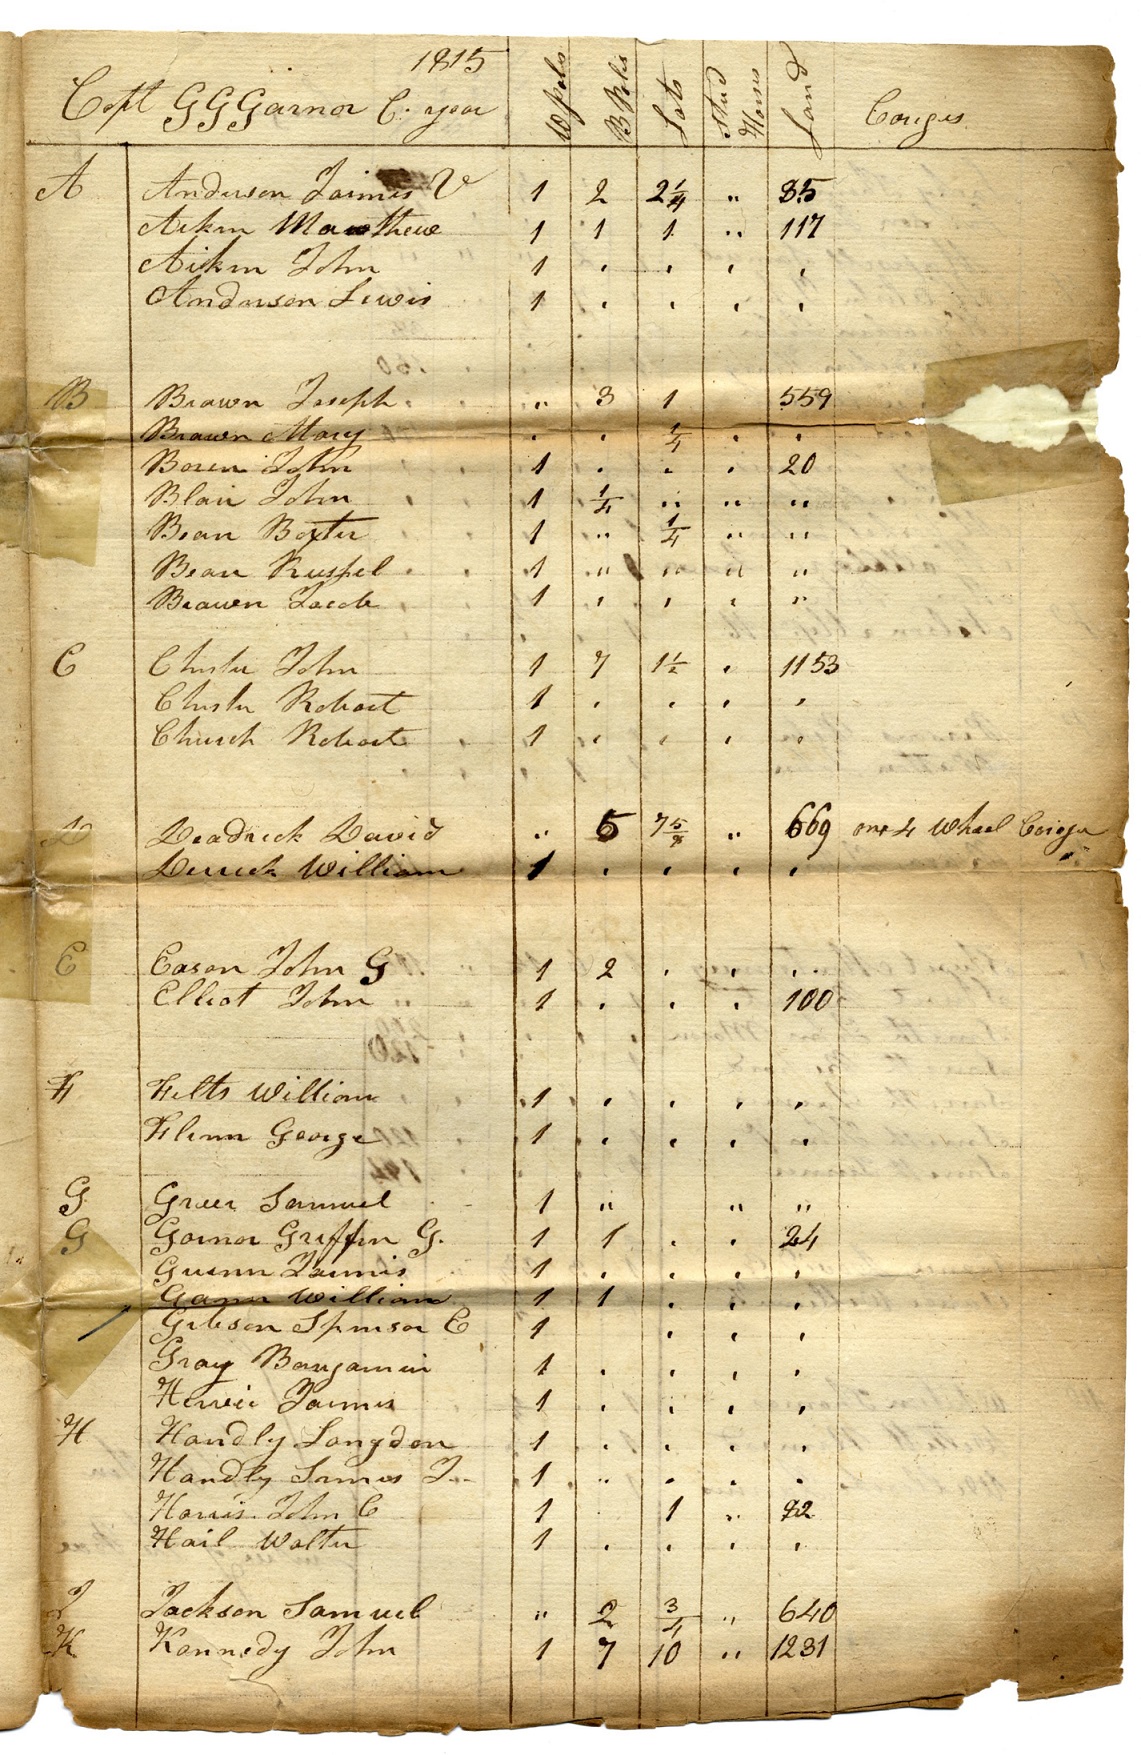 1815
Capt GGGarnor C. year W Pols B Polls Lots Stud Horses Land Cariges
A Anderson Jaimes V 1 2 2 1/4 " 85
Aikin Matthew 1 1 1 " 117
Aikin John 1 , , , ,
Anderson Lewis 1 , , , ,
B Brown Joseph " 3 1 559
Brown Mary , , 1/4 , ,
Boren John 1 , , , 20
Blair John 1 1/4 " " "
Bean Boxter 1 " 1/4 " "
Bean Russel 1 " " " "
Brown Jacob 1 , , , "
C Chister John 1 7 1 1/2 , 1153
Chister Robart 1 , , , ,
Church Robart 1 , , , ,
D Deadrick David " 5 7 5/8 " 669 one 4 Wheel
Derrick William 1 , , , ,
E Eason John G 1 2 , , ,
Elliot John 1 , , , 100
F Felts William 1 , , , ,
Flinn George 1 , , , ,
G Greer Samuel 1 " " "
G Garnor Griffin G. 1 1 , , 24
Guinn Jaimis 1 , , , ,
Gann William 1 1 , , ,
Gibson Spinsor C 1 , , ,
Gray Banjamin 1 , , , ,
Jaimis 1 , , , ,
H Handly Langdon 1 , , , ,
Handly James J. 1 " , , ,
Harris John C 1 1 " 82
Hail Walter 1 , , , ,
J Jackson Samuel " 2 3/4 " 640
K Kannedy John 1 7 10 " 1231